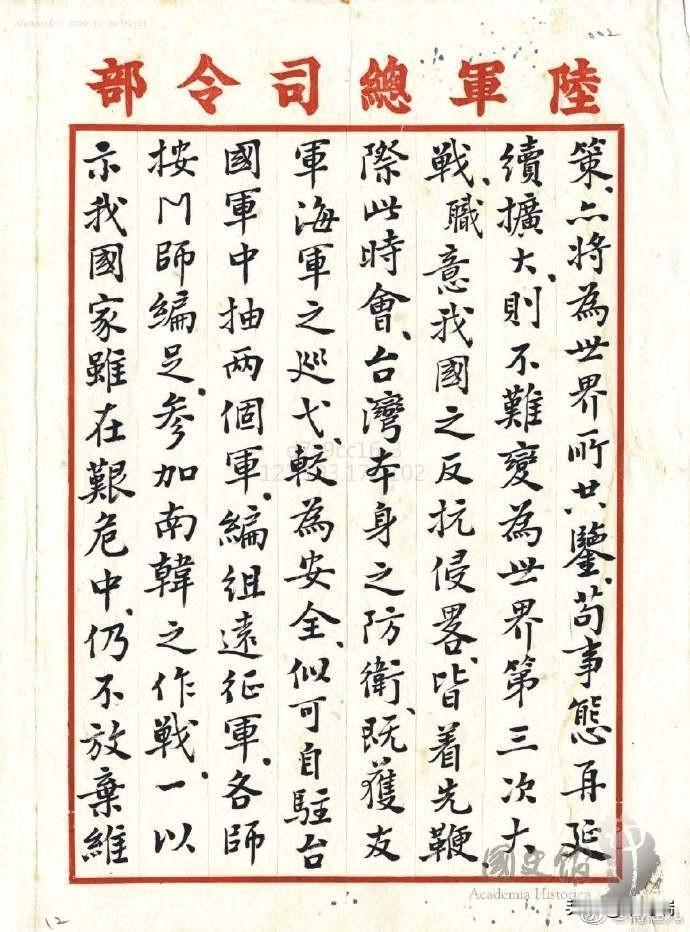 002
陸軍總司令部
策、亦将為世界所共鑒、苟事態再延
續擴大、則不難變為世界第三次大
戰、職意我國之反抗侵畧、皆着先鞭、
際此時會、台灣本身之防衛、既獲友
軍海軍之巡弋、較為安全、似可自駐台
國軍中抽两個軍、編組遠征軍、各師
按川師編足、參加南韓之作戰、一以
示我國家雖在艱危中、仍不放棄維
國史館
Academia Historica
12